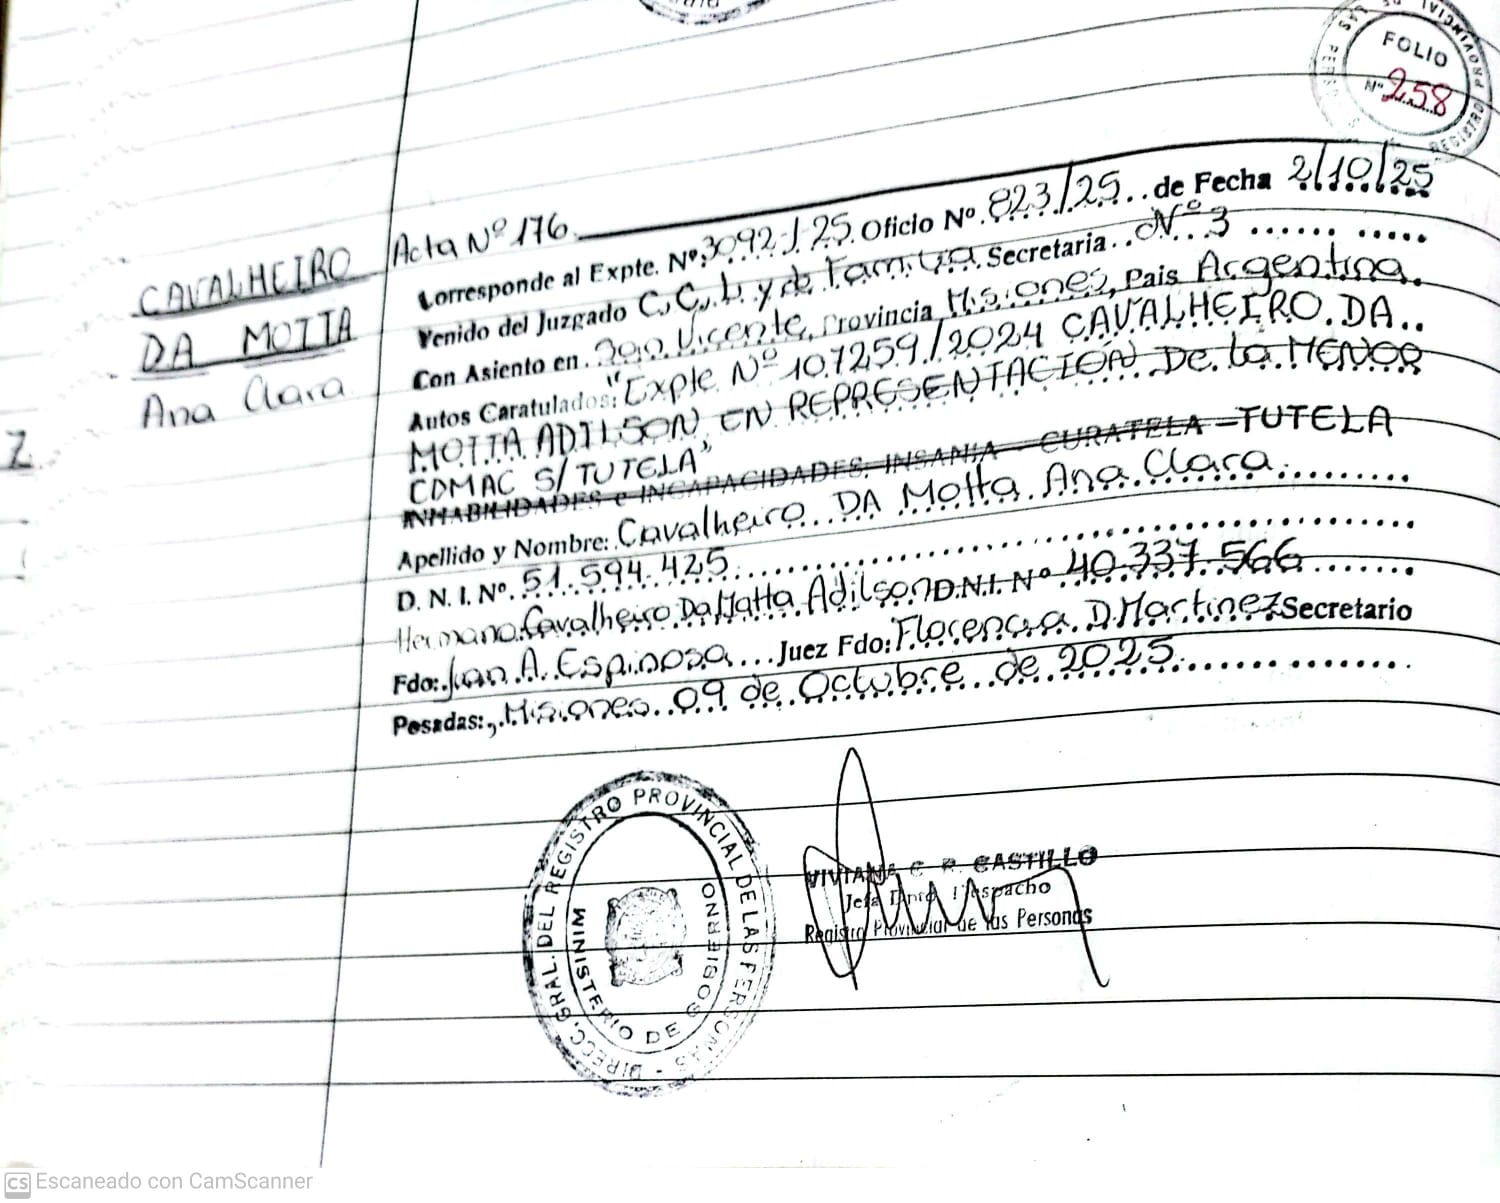 REGISTRO PROVINCIAL DE LAS PERSONAS
FOLIO
Nº 258
CAVALHEIRO
DA MOTTA
Ana Clara
Acta Nº 176
Corresponde al Expte. Nº: 3092/25 Oficio Nº 823/25 de Fecha 2/10/25
Venido del Juzgado C, C, L. y de Familia Secretaria Nº 3
Con Asiento en San Vicente, Provincia Misiones, Pais Argentina
Autos Caratulados: "Expte Nº 107259/2024 CAVALHEIRO DA
MOTTA ADILSON, EN REPRESENTACIÓN De la MENOR
CDMAC S/TUTELA"
INHABILIDADES e INCAPACIDADES: INSANIA - CURATELA - TUTELA
Apellido y Nombre: Cavalheiro DA Motta Ana Clara
D. N. I. Nº. 51.594.425
Hermano Cavalheiro Da Matta Adilson D.N.I. Nº 40.337.566
Fdo: Juan A. Espinosa Juez Fdo: Florencia D. Martinez Secretario
Posadas:, Misiones 09 de Octubre de 2025
DIRECC. GRAL. DEL REGISTRO PROVINCIAL DE LAS PERSONAS
MINISTERIO DE GOBIERNO
VIVIANA C. R. CASTILLO
Jefa Dpto. Despacho
Registro Provincial de las Personas
CS Escaneado con CamScanner